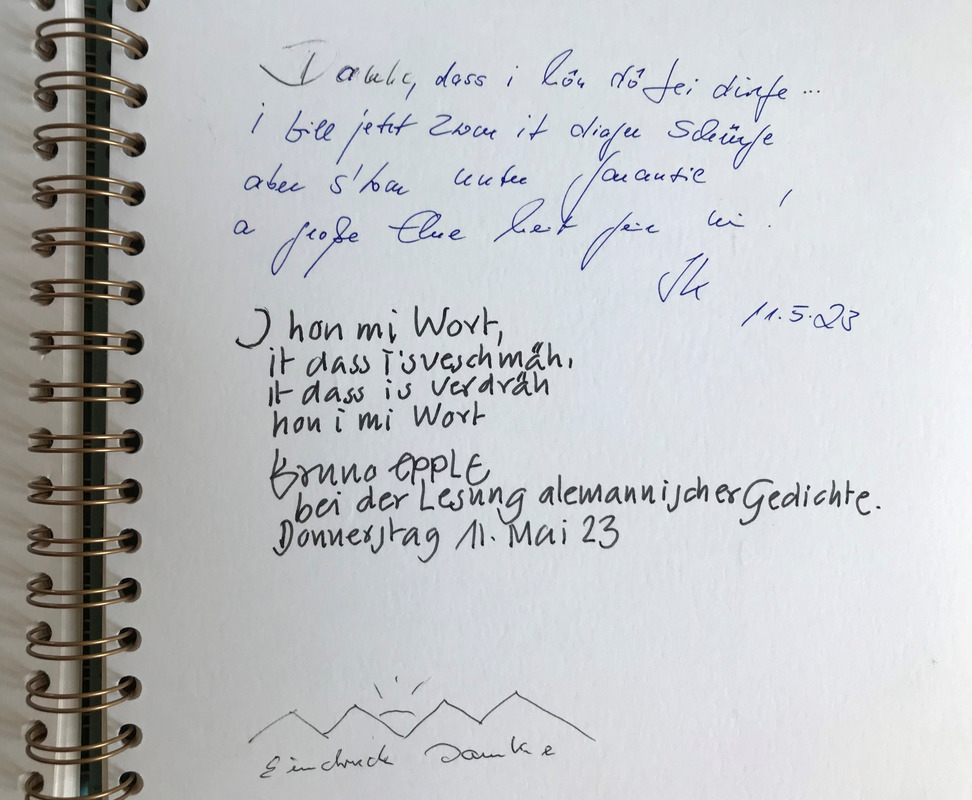 Danke, dass i hôn dô sei dirfe...
i bill jetzt zwar it diafer
aber s'war unter Garantie
a große Ehre heit fir mi!
11.5.23
J hon mi Wort,
it dass I's veschmäh,
it dass is verdräh
hon i mi Wort
Bruno EPPLE
bei der Lesung alemannischer Gedichte.
Donnerstag 11. Mai 23
Eindruck Danke